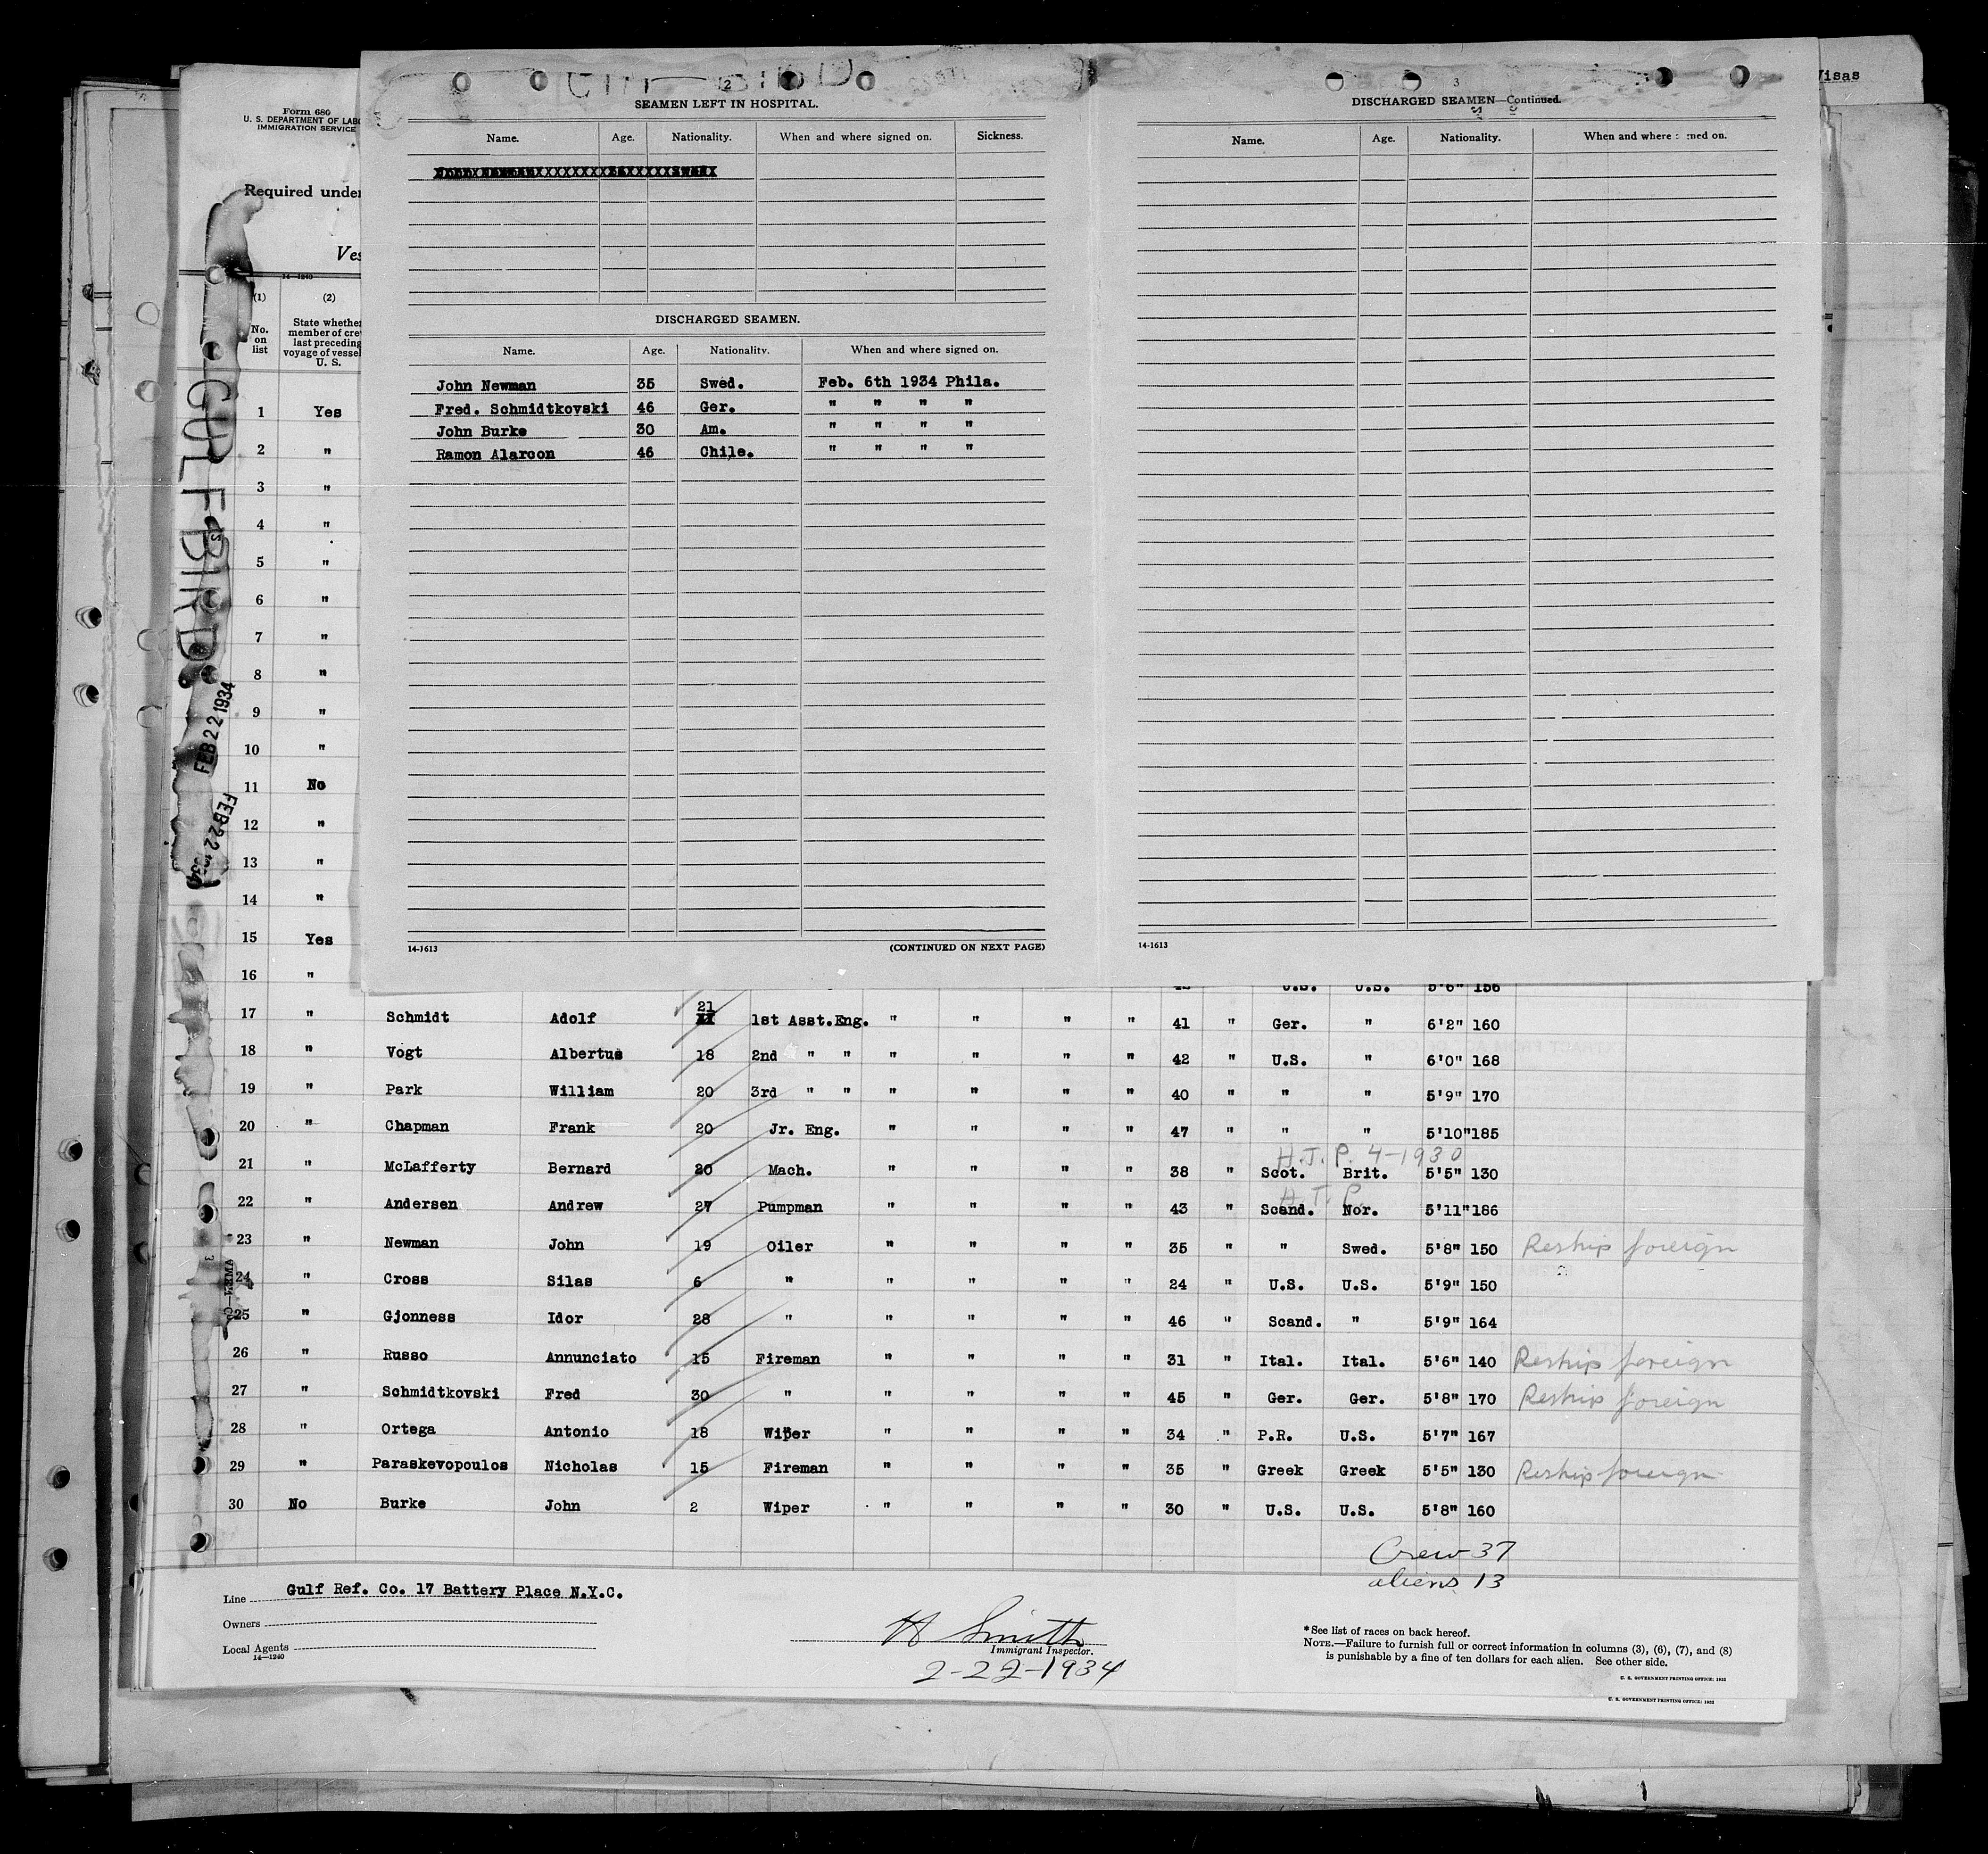 Visas
2
SEAMEN LEFT IN HOSPITAL.
Name. Age. Nationality. When and where signed on. Sickness.
DISCHARGED SEAMEN.
Name. Age. Nationality. When and where signed on.
John Newman 35 Swed. Feb. 6th 1934 Phila.
Fred. Schmidtkovski 46 Ger. " " " "
John Burke 30 Am. " " " "
Ramon Alarcon 46 Chile. " " " "
14-1613 (CONTINUED ON NEXT PAGE)
3
DISCHARGED SEAMEN—Continued.
Name. Age. Nationality. When and where signed on.
14-1613
Form 680
U. S. DEPARTMENT OF LABO
IMMIGRATION SERVICE
Required under
Ves
14—1240
(1) (2)
No. on list
State whether
member of cre
last preceding
voyage of vessel
U. S.
GULFBIRD
FEB 22 1934
FEB 22 1934
1 Yes
2 "
3 "
4 "
5 "
6 "
7 "
8 "
9 "
10 "
11 No
12 "
13 "
14 "
15 Yes
16 " U.S. U.S. 5'6" 156
17 " Schmidt Adolf 21 1st Asst.Eng. " " " " 41 " Ger. " 6'2" 160
18 " Vogt Albertus 18 2nd " " " " " " 42 " U.S. " 6'0" 168
19 " Park William 20 3rd " " " " " " 40 " " " 5'9" 170
20 " Chapman Frank 20 Jr. Eng. " " " " 47 " " " 5'10" 185
H.J.P. 4-1930
21 " McLafferty Bernard 20 Mach. " " " " 38 " Scot. Brit. 5'5" 130
H.J.P.
22 " Andersen Andrew 27 Pumpman " " " " 43 " Scand. Nor. 5'11" 186
23 " Newman John 19 Oiler " " " " 35 " " Swed. 5'8" 150 Reship foreign
24 " Cross Silas 6 " " " " " 24 " U.S. U.S. 5'9" 150
25 " Gjonness Idor 28 " " " " " 46 " Scand. " 5'9" 164
26 " Russo Annunciato 15 Fireman " " " " 31 " Ital. Ital. 5'6" 140 Reship foreign
27 " Schmidtkovski Fred 30 " " " " " 45 " Ger. Ger. 5'8" 170 Reship foreign
28 " Ortega Antonio 18 Wiper " " " " 34 " P.R. U.S. 5'7" 167
29 " Paraskevopoulos Nicholas 15 Fireman " " " " 35 " Greek Greek 5'5" 130 Reship foreign
30 No Burke John 2 Wiper " " " " 30 " U.S. U.S. 5'8" 160
Crew 37
aliens 13
Line Gulf Ref. Co. 17 Battery Place N.Y.C.
Owners
Local Agents
14—1240
H Smith
Immigrant Inspector.
2-22-1934
*See list of races on back hereof.
NOTE.—Failure to furnish full or correct information in columns (3), (6), (7), and (8)
is punishable by a fine of ten dollars for each alien. See other side.
U. S. GOVERNMENT PRINTING OFFICE: 1932
U. S. GOVERNMENT PRINTING OFFICE: 1932